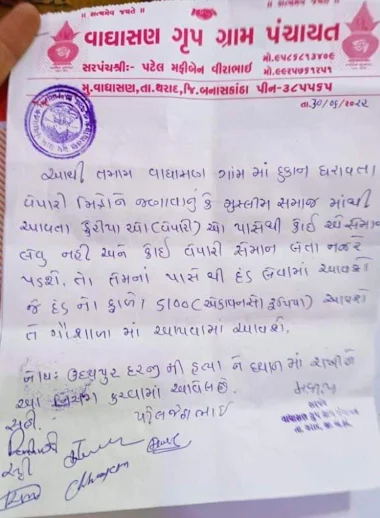 ॥ સત્યમેવ જયતે ॥ ॥ સત્યમેવ જયતે ॥
વાઘાસણ ગૃપ ગ્રામ પંચાયત
સરપંચશ્રી:- પટેલ મફીબેન વીરાભાઈ
મુ.વાઘાસણ,તા.થરાદ,જિ.બનાસકાંઠા પીન-૩૮૫૫૬૫
તા.૩૦/૦૬/૨૦૨૨
આથી તમામ વાઘાસણ ગામ માં દુકાન ધરાવતા
વેપારી મિત્રોને જણાવાનું કે મુસ્લીમ સમાજ માંથી
આવતા ફેરીયા ઓ (વેપારી) ઓ પાસેથી કોઈ એ સામાન
લેવુ નહી અને કોઈ વેપારી સામાન લેતા નજરે
પડશે. તો તેમનાં પાસે થી દંડ લેવામાં આવશે
જે દંડ નો ફાળો 5100 (એકાવનસો રૂપિયા) આવશે
તે ગૌશાળા માં આપવામાં આવશે.
નોંધ: ઉદયપુર દરજી ની હત્યા ને ધ્યાન માં રાખીને
આ નિર્ણય કરવામાં આવેલ છે.
સહી.
સરપંચ
વાઘાસણ ગૃપ ગ્રામ પંચાયત
સહી